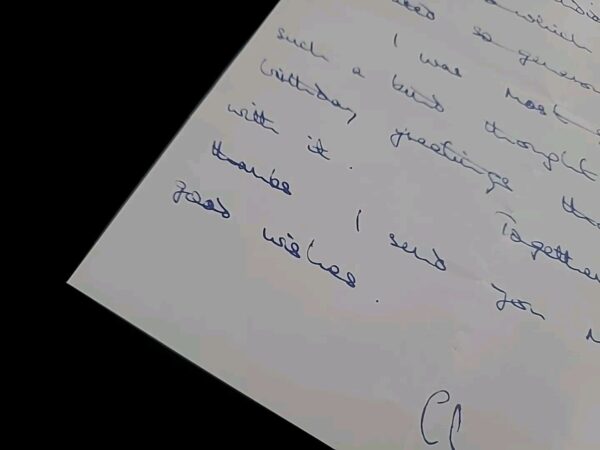 which
so
I was most
such a kind thought
birthday greetings
with it. Together
thanks I send you
good wishes.